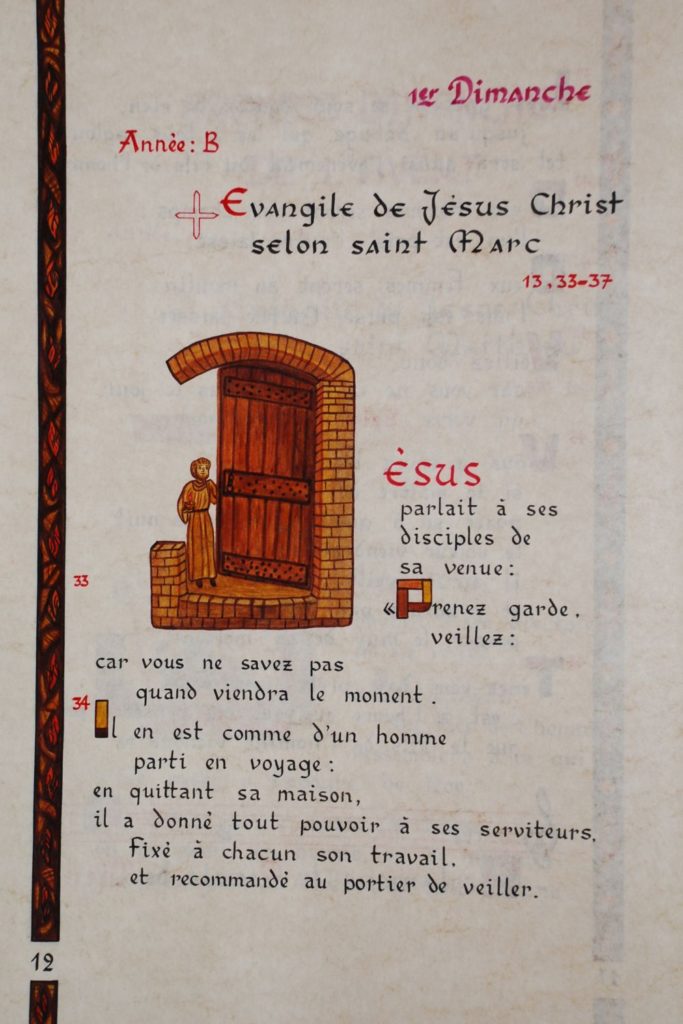 1er Dimanche
Année: B
Evangile de Jésus Christ
selon saint Marc
13, 33-37
ÉSUS
parlait à ses
disciples de
sa venue:
33
«Prenez garde,
veillez:
car vous ne savez pas
quand viendra le moment.
34
Il en est comme d'un homme
parti en voyage:
en quittant sa maison,
il a donné tout pouvoir à ses serviteurs,
Fixé à chacun son travail.
et recommandé au portier de veiller.
12